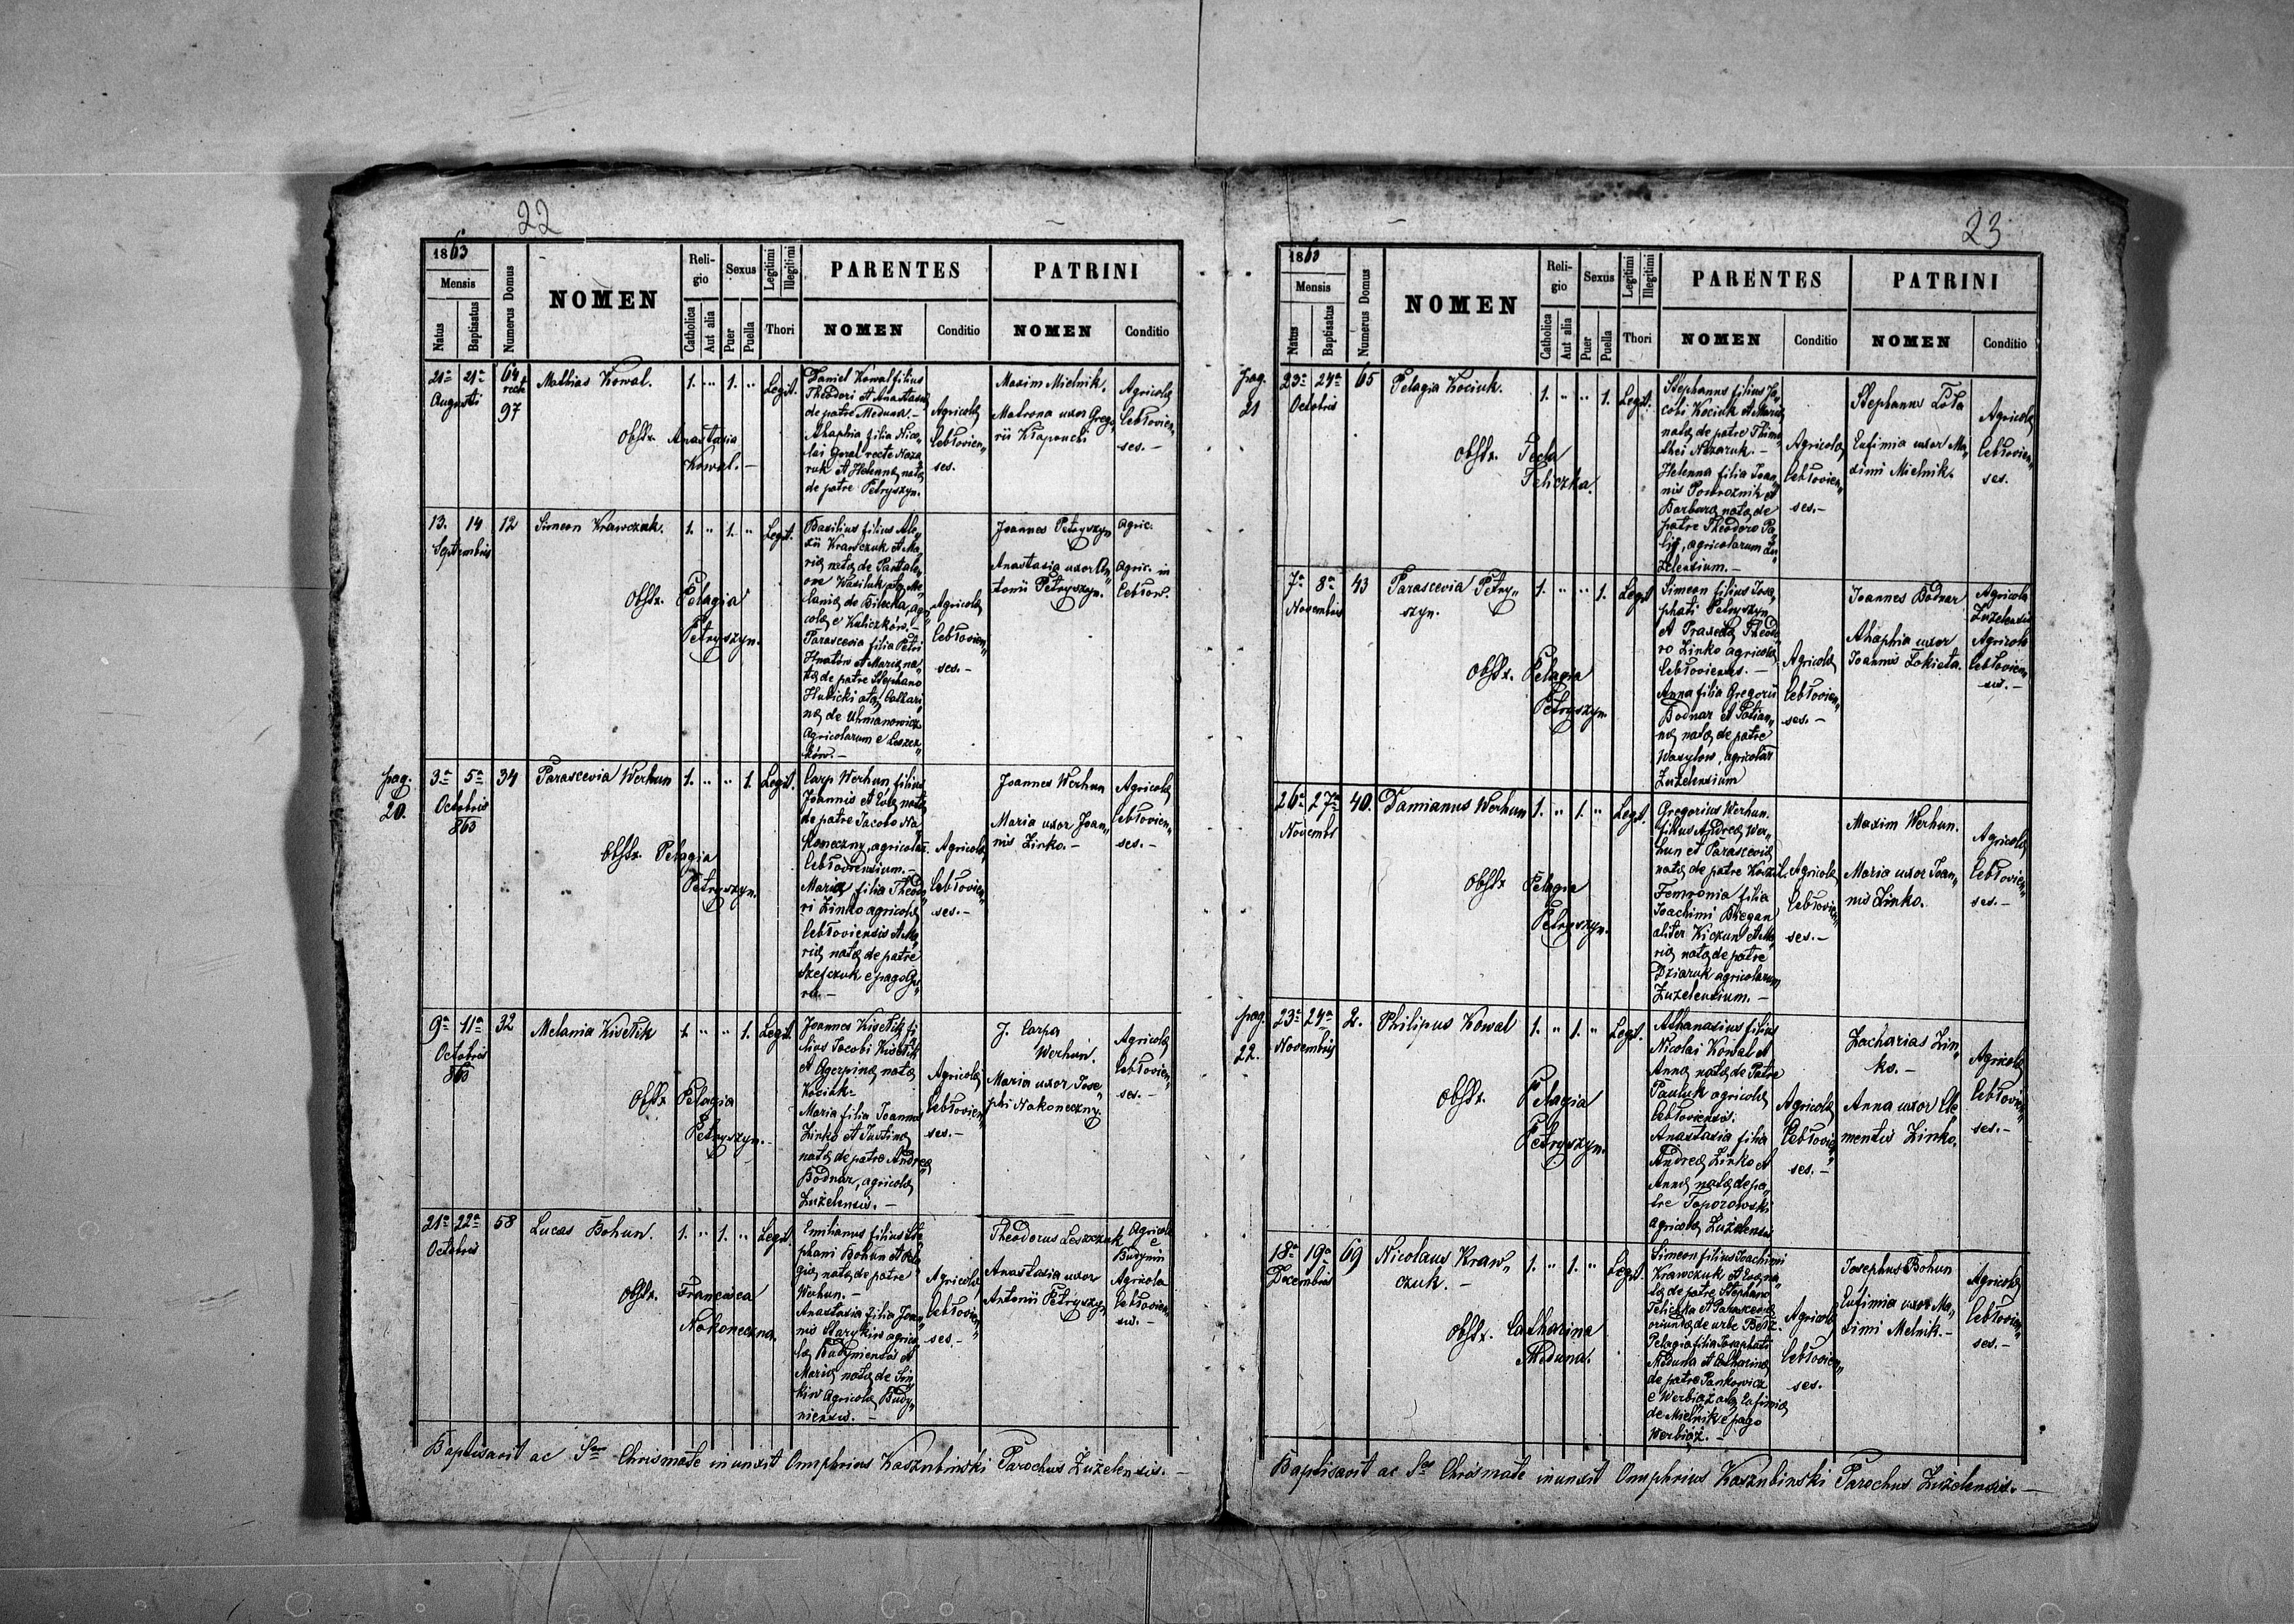 22
1863
Mensis
Natus
Baptisatus
Numerus Domus
NOMEN
Reli-
gio
Catholica
Aut alia
Sexus
Puer
Puella
Legitimi
Illegitimi
Thori
PARENTES
NOMEN
Conditio
PATRINI
NOMEN
Conditio
21a 21a
Augusti
64
recte
97
Mathias Kowal.
1. " 1. " Legit.
Obstx. Anastasia
Kowal. –
Daniel Kowal filius
Theodori et Anastasiæ
de patre Meduna. –
Ahaphia filia Nico„
lai Goral recte Naza
ruk et Helennæ natæ
de patre Petryszyn.
Agricolæ
Cebłovien„
ses.
Maxim Mielnik.
Matrona uxor Grego„
rii Kłapouchi
Agricolæ
Cebłovien„
ses. –
13. 14
Septembris
12
Simeon Krawczuk.
1. " 1. " Legit.
Obstx. Pelagia
Petryszyn.
Basilius filius Ale„
xii Krawczuk et Ma„
riæ natæ de Pantale„
one Wasiluk atq Me„
laniæ de Bilecka, ag„
colæ e Kuliczków. –
Parascevia filia Petri
Hnatów et Mariæ na„
tæ de patre Stephano
Hubicki atq Cathari„
næ de Uhmanowicz
Agricolarum e Leszcz„
ków. –
Agricolæ
Cebłovien„
ses. –
Joannes Petryszyn
Anastasia uxor An„
tonii Petryszyn.
Agric.
Agric. in
Cebłow.
pag.
20.
3a 5a
Octobris
863
34
Parascevia Werhun
1. " " 1. Legit.
Obstx. Pelagia
Petryszyn.
Carp Werhun, filius
Joannis et Evæ natæ
de patre Jacobo Na
koneczny, agricolar.
Cebłoviensium. –
Maria filia Theodo„
ri Zinko agricolæ
Cebłoviensis et Ma„
riæ natæ de patre
Szejczuk e pago
Agricolæ
Cebłovien„
ses. –
Joannes Werhun
Maria uxor Joan„
nis Zinko. –
Agricolæ
Cebłovien„
ses. –
9a 11a
Octobris
863
32
Melania Kisełik
1. " " 1. Legit.
Obstx. Pelagia
Petryszyn. –
Joannes Kisełik fi
lius Jacobi Kisełik
et Agerpinæ natæ
Kociuk –
Maria filia Joannis
Zinko et Justinæ
natæ de patre Andrea
Bodnar, agricolæ
Żużelensis. –
Agricolæ
Cebłovien„
ses. –
J. Carpa
Werhun.
Maria uxor Jose„
phi Nakoneczny.
Agricolæ
Cebłovien„
ses. –
21a 22a
Octobris
58
Lucas Bohun.
1. " 1. " Legit.
Obstx. Francisca
Nakoneczna.
Emilianus filius Ste
phani Bohun et Pela
giæ natæ de patre
Werhun. –
Anastasia filia Joan„
nis Starykiw agrico„
læ Budyniensis et
Mariæ natæ de Sin„
kiw Agricolæ Budy„
niensis. –
Agricolæ
Cebłovien„
ses –
Theodorus Leszczuk
Anastasia uxor
Antonii Petryszyn.
Agricola
e
Budynin
Agricola
Cebłovien„
sis. –
Baptisavit ac Sto Chrismate inunxit Onuphrius Kaszubinski Parochus Żużelensis. –
23
1863
Mensis
Natus
Baptisatus
Numerus Domus
NOMEN
Reli-
gio
Catholica
Aut alia
Sexus
Puer
Puella
Legitimi
Illegitimi
Thori
PARENTES
NOMEN
Conditio
PATRINI
NOMEN
Conditio
pag.
21
23a 24a
Octobris
65
Pelagia Kociuk.
1. " " 1. Legit.
Obstx. Tecla
Teliczka.
Stephanus filius Ja„
cobi Kociuk et Mariæ
natæ de patre Thimo„
thei Nazaruk. –
Helenna filia Joan„
nis Powroznik et
Barbaræ natæ de
patre Theodoro Pa„
lij, agricolarum Żu„
żelensium. –
Agricolæ
Cebłovien„
ses. –
Stephanus Łoła
Eufimia uxor Ma„
ximi Mielnik.
Agricolæ
Cebłovien„
ses.
7a 8a
Novembris
43
Parascevia Petry„
szyn.
1. " " 1. Legit
Obstx. Pelagia
Petryszyn.
Simeon filius Josa„
phati Petryszyn
et Praxedæ Theodo„
ro Zinko agricolæ
Cebłoviensis. –
Anna filia Gregorii
Bodnar et Polian„
næ natæ de patre
Wasylow, agricolar
Żużelensium
Agricolæ
Cebłovien„
ses. –
Joannes Bodnar
Ahaphia uxor
Joannis Łokieta.
Agricola
Żużelensis
Agricola
Cebłovien„
sis. –
26a 27a
Novembr
40.
Damianus Werhun
1. " 1. " Legit.
Obstx Pelagia
Petryszyn.
Gregorius Werhun
filius Andreæ Wer„
hun et Parasceviæ
natæ de patre
Femronia filia
Joachimi Bhegan
aliter Kiczun et Ma„
riæ natæ de patre
Dziaruk agricolarum
Żużelensium. –
Agricolæ
Cebłovien„
ses. –
Maxim Werhun.
Maria uxor Joan„
nis Zinko.
Agricolæ
Cebłovien„
ses. –
pag.
22.
23a 24a
Novembris
2.
Philipus Kowal
1. " 1. " Legit.
Obstx. Pelagia
Petryszyn.
Athanasius filius
Nicolai Kowal et
Annæ natæ de Patre
Pauluk agricolæ
Cebłoviensis.
Anastasia filia
Andreæ Zinko et
Annæ natæ de pa„
tre Toporowski
agricolæ Żużelensis
Agricolæ
Cebłovien„
ses. –
Zacharias Zin„
ko. –
Anna uxor Cle
mentis Zinko.
Agricolæ
Cebłovien„
ses. –
18a 19a
Decembris
69
Nicolaus Kraw„
czuk. –
1. " 1. " Legit.
Obstx. Catharina
Meduna.
Simeon filius Joachimi
Krawczuk et Evæ na„
tæ de patre Stephano
Teliczka et Parasceviæ
oriundæ de urbe Bełz.
Pelagia filia Josaphati
Meduna et Catharinæ
de patre Pankowicz
e Werbiąż atq Eufimiæ
de Mielnik e pago
Werbiąż. –
Agricolæ
Cebłovien„
ses.
Josephus Bohun
Eufimia uxor Ma„
ximi Melnik. –
Agricolæ
Cebłovien„
ses. –
Baptisavit ac Sto Chrismate inunxit Onuphrius Kaszubinski Parochus Żużelensis. –